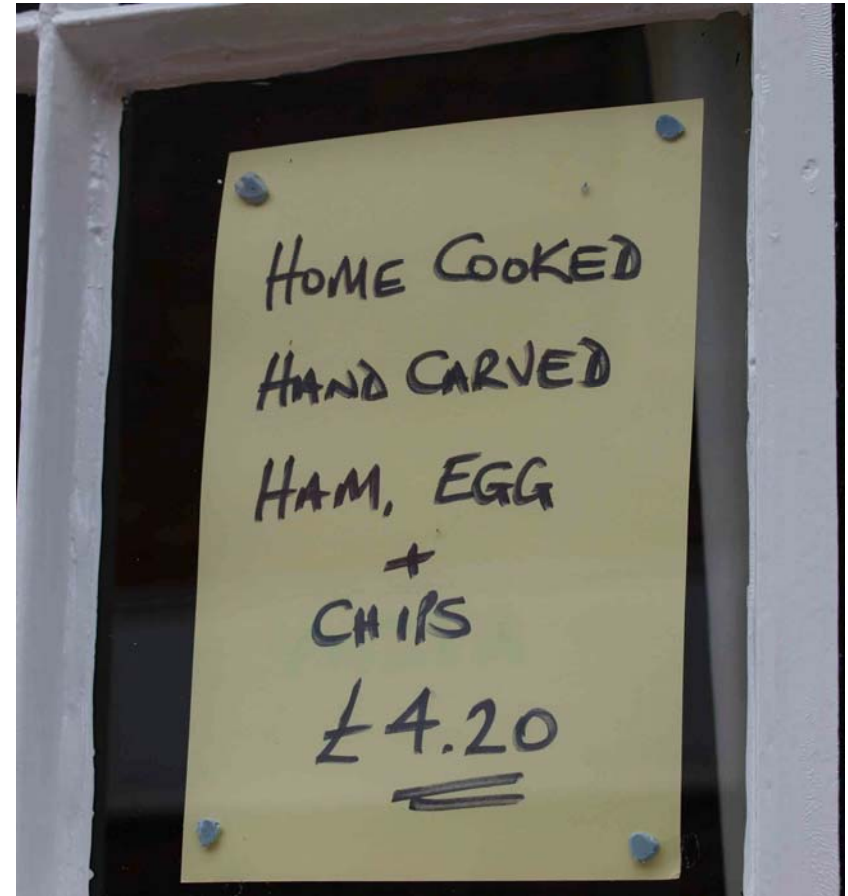 HOME COOKED
HAND CARVED
HAM, EGG
+
CHIPS
£4.20